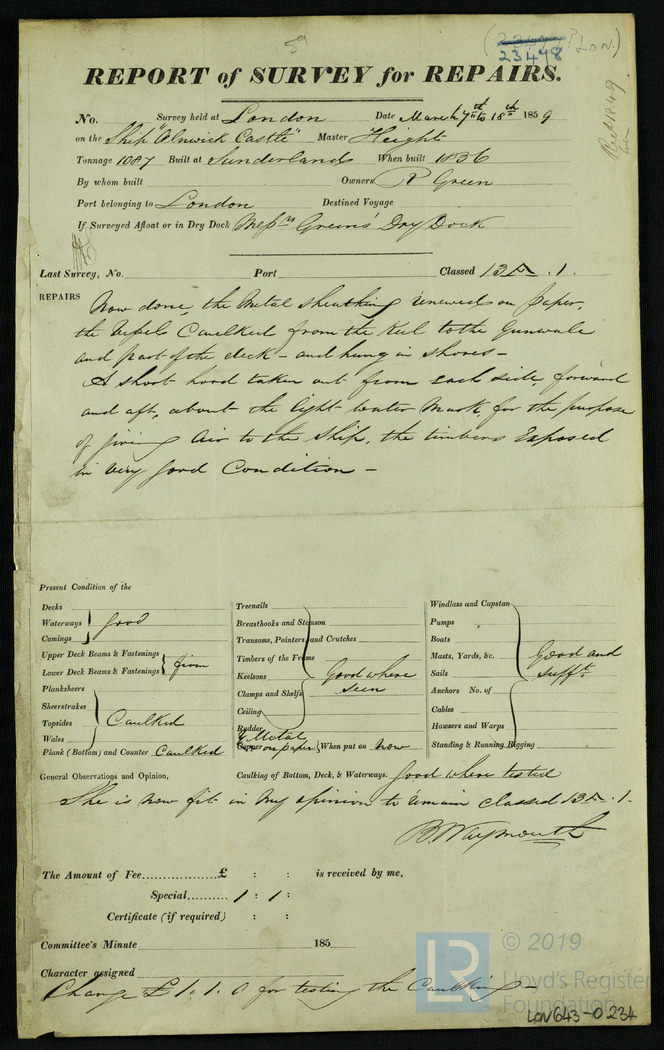 59
23498
LON.)
REPORT of SURVEY for REPAIRS.
No. Survey held at London Date March 7th to 18th 1859
on the Ship "Alnwick Castle" Master Height
Tonnage 1087 Built at Sunderland When built 1836
By whom built Owners R Green
Port belonging to London Destined Voyage
If Surveyed Afloat or in Dry Dock Messrs Greens' Dry Dock
Last Survey, No. Port Classed 13 A . 1.
REPAIRS Now done, the Metal sheathing renewed on paper,
the Vessel Caulked from the Keel to the Gunwale
and part of the deck - and hung in shores -
A short hood taken out from each side, forward
and aft, about the light water Mark, for the purpose
of giving Air to the Ship, the timbers Exposed
in very good Condition -
Present Condition of the
Decks
Waterways good
Comings
Upper Deck Beams & Fastenings
Lower Deck Beams & Fastenings firm
Planksheers
Sheerstrakes
Topsides Caulked
Wales
Plank (Bottom) and Counter Caulked
Treenails
Breasthooks and Stemson
Transoms, Pointers, and Crutches
Timbers of the Frame
Keelsons Good where
Clamps and Shelfs seen
Ceiling
Rudder
Y Metal
Copper on paper When put on Now
Windlass and Capstan
Pumps
Boats
Masts, Yards, &c. Good and
Sails sufft.
Anchors No. of
Cables
Hawsers and Warps
Standing & Running Rigging
General Observations and Opinion, Caulking of Bottom, Deck, & Waterways. Good where tested
She is now fit in my opinion to remain Classed 13 A . 1.
B. Waymouth
The Amount of Fee...................£ : : is received by me,
Special.......... 1 : 1 :
Certificate (if required) : :
Committee's Minute 185
Character assigned
Charge £ 1. 1. 0 for testing the Caulking -
LR
© 2019
Lloyd's Register
Foundation
LON643-0234